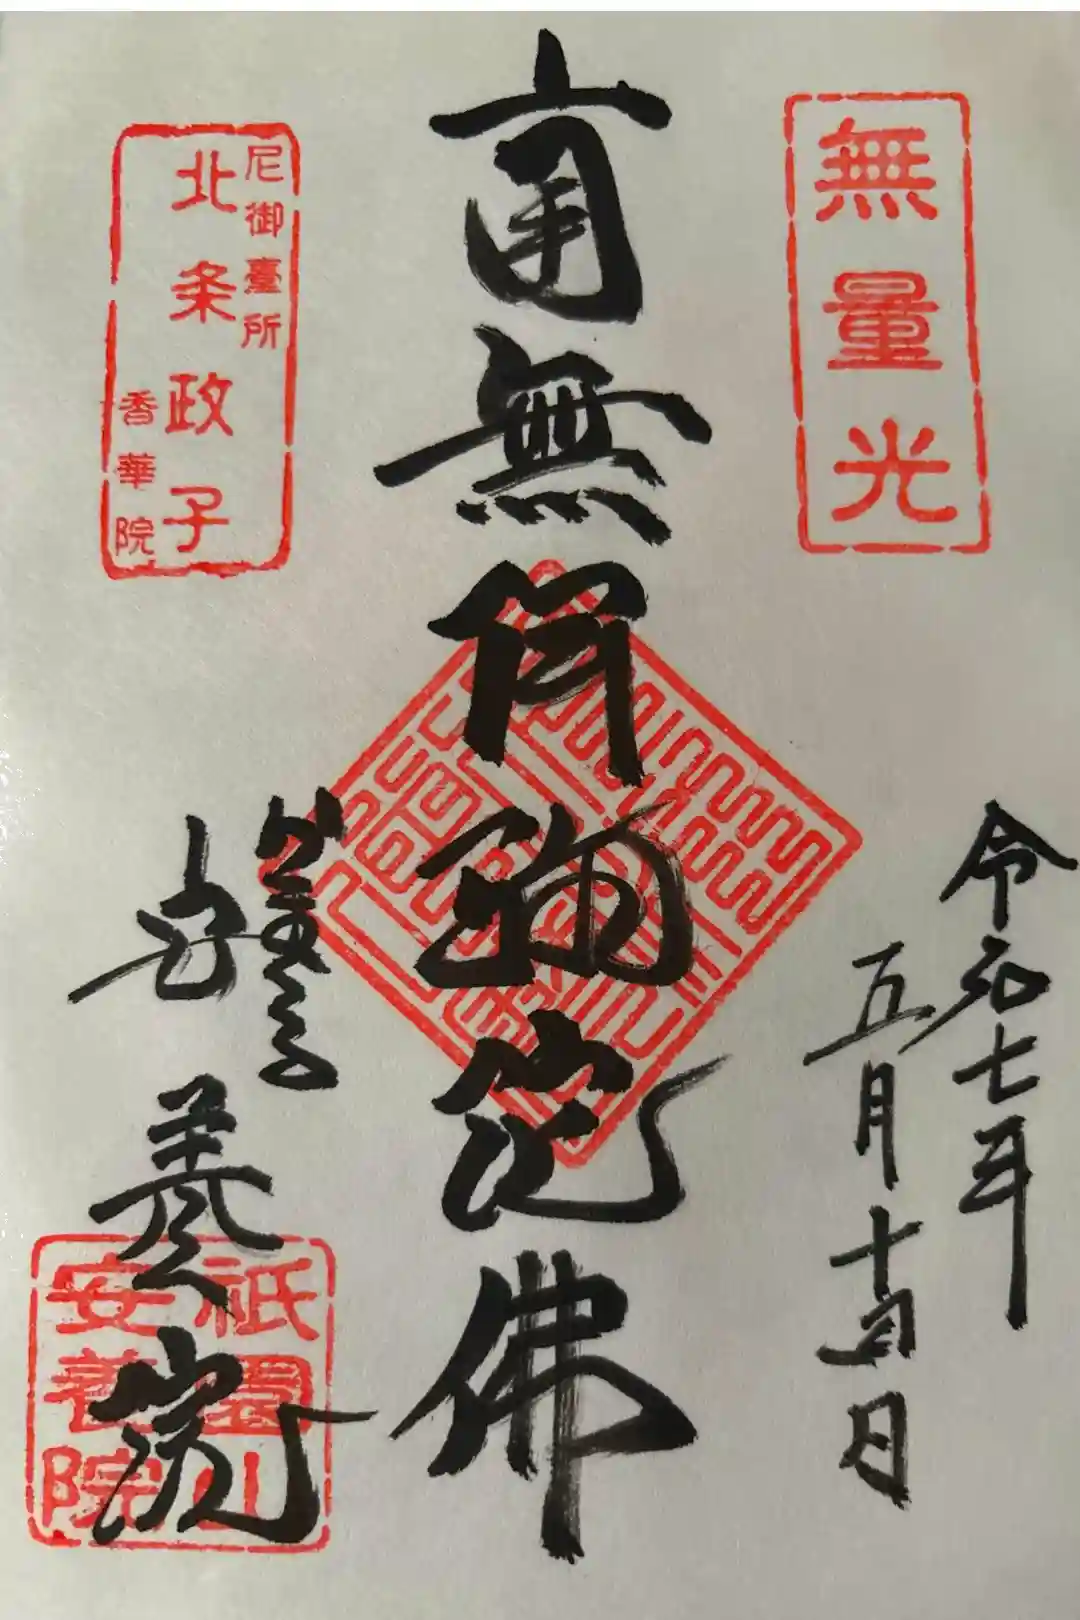 無量光
令和七年
五月十五日
南無阿弥陀佛
尼御臺所
北条政子
香華院
安養院
祇園山
安養院